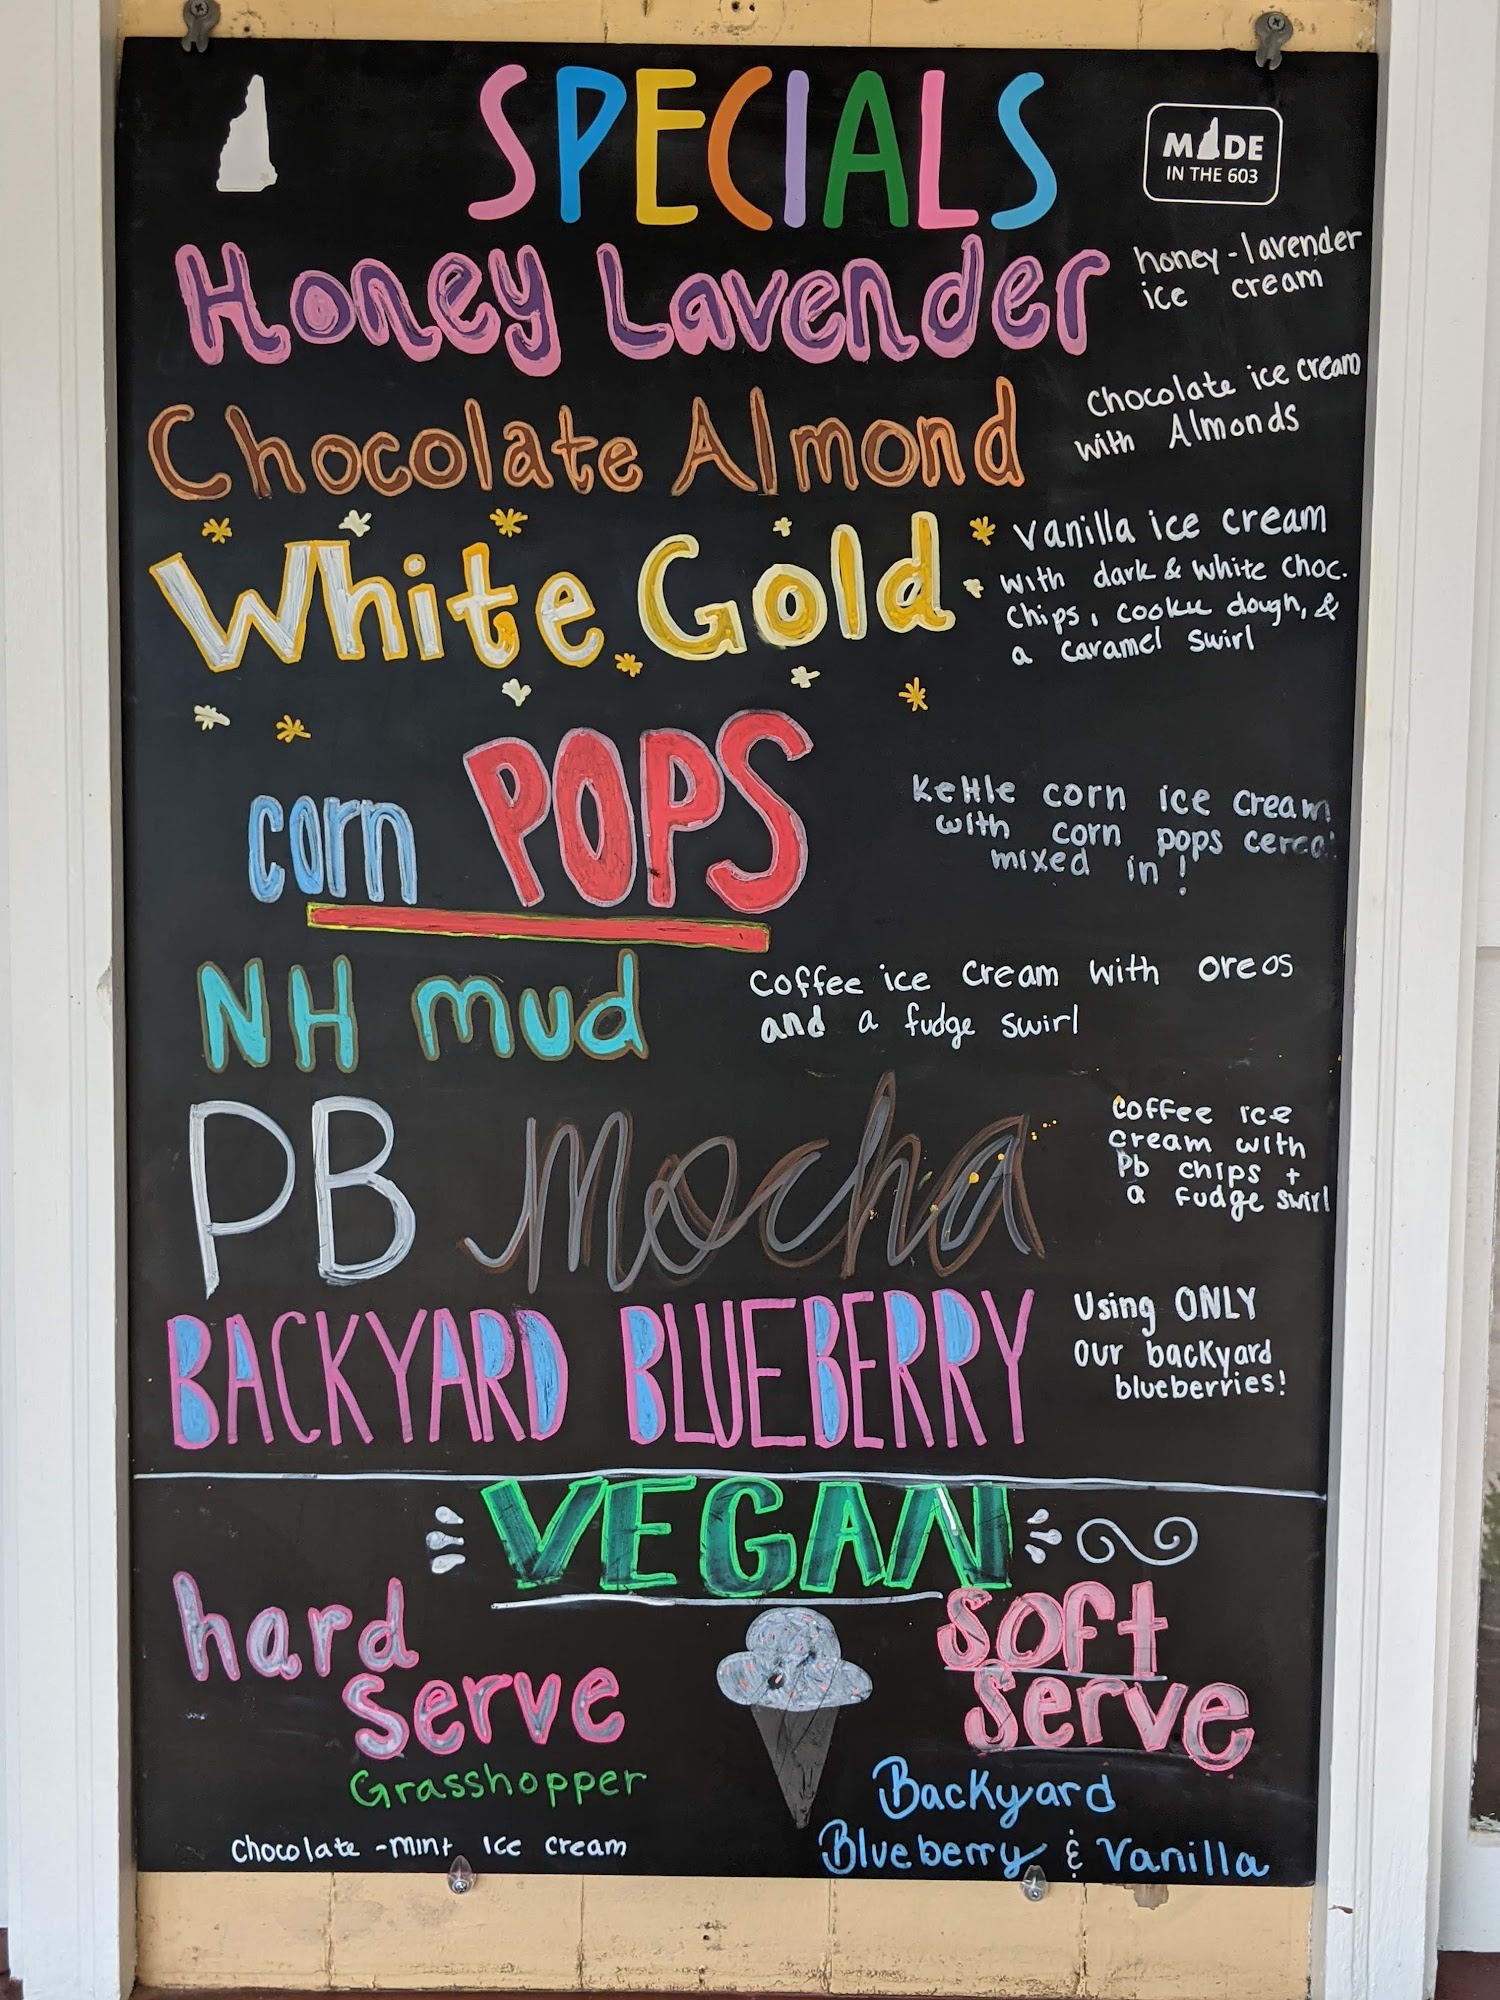 SPECIALS
MADE
IN THE 603
Honey Lavender
honey-lavender
ice cream
Chocolate Almond
Chocolate ice cream
with Almonds
White Gold
Vanilla ice cream
with dark & white choc.
chips, cookie dough, &
a caramel swirl
corn POPS
Kettle corn ice cream
with corn pops cereal
mixed in!
NH mud
Coffee ice cream with oreos
and a fudge swirl
PB mocha
Coffee ice
cream with
Pb chips +
a fudge swirl
BACKYARD BLUEBERRY
Using ONLY
our backyard
blueberries!
VEGAN
hard
serve
Grasshopper
chocolate-mint ice cream
soft
serve
Backyard
Blueberry & Vanilla